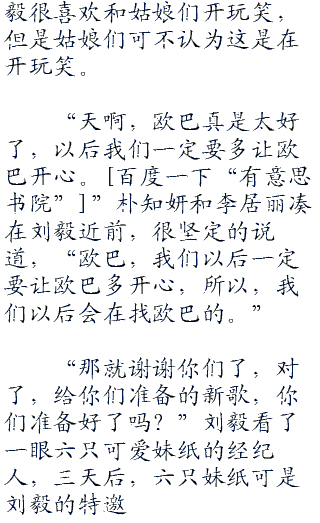 毅很喜欢和姑娘们开玩笑，
但是姑娘们可不认为这是在
开玩笑。
“天啊，欧巴真是太好
了，以后我们一定要多让欧
巴开心。[百度一下“有意思
书院”]”朴知妍和李居丽凑
在刘毅近前，很坚定的说
道，“欧巴，我们以后一定
要让欧巴多开心，所以，我
们以后会在找欧巴的。”
“那就谢谢你们了，对
了，给你们准备的新歌，你
们准备好了吗？”刘毅看了
一眼六只可爱妹纸的经纪
人，三天后，六只妹纸可是
刘毅的特邀